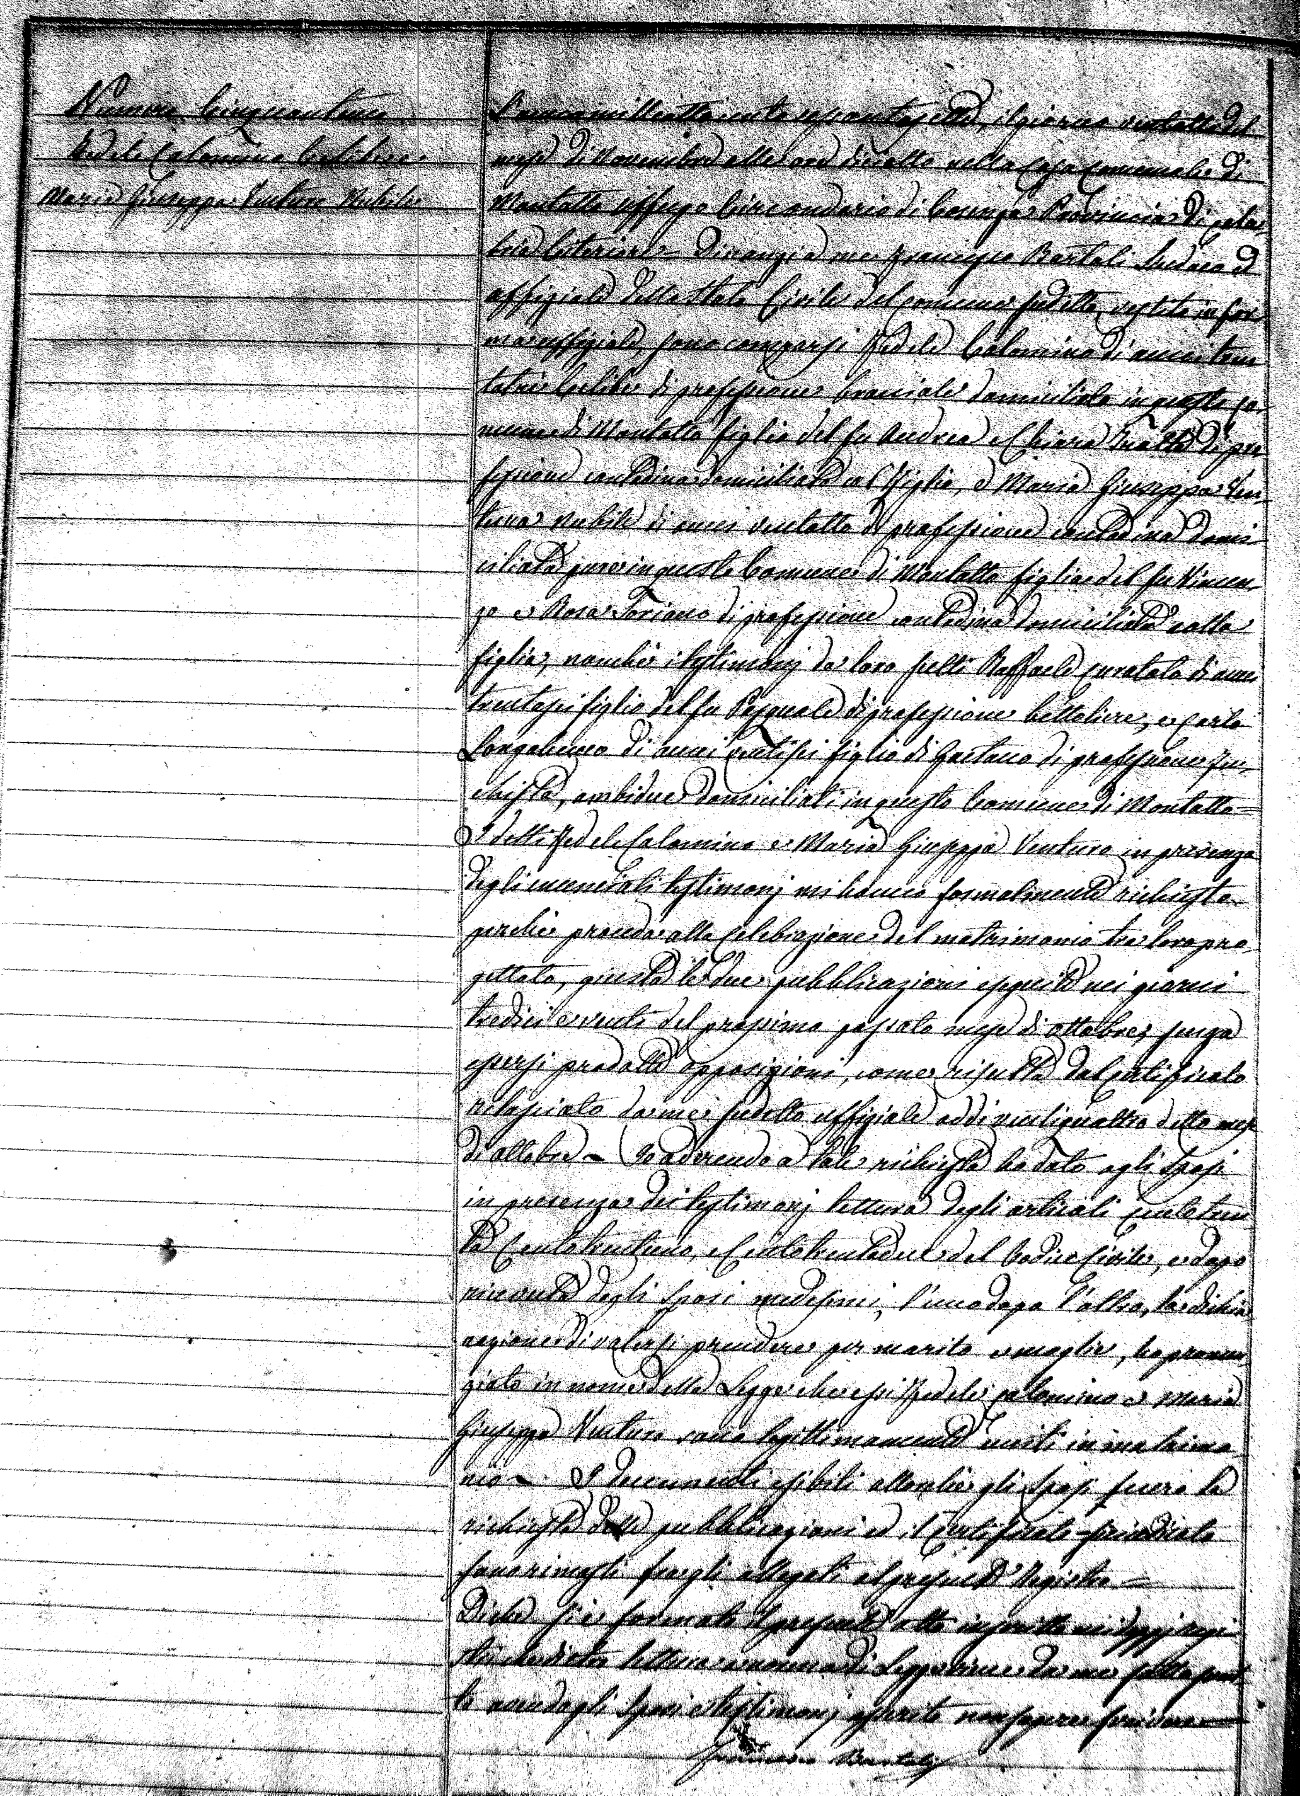 Numero Cinquantuno
Fedele Calomino Celibe
Maria Giuseppa Venturo Nubile
L'anno milleottocento sessantasette, il giorno ventotto del
mese di Novembre alle ore diciotto nella Casa Comunale di
Montalto Uffugo Circondario di Cosenza Provincia di Cala-
bria Citeriore = Dinanzi a me Francesco Bartoli Sindaco ed
uffiziale dello Stato Civile del comune sudetto, vestito in for-
ma uffiziale, sono comparsi Fedele Calomino di anni tren-
tatrè Celibe di professione bracciale domiciliato in questo co-
mune di Montalto figlio del fu Andrea e Chiara di pro-
fessione contadina domiciliata col figlio, e Maria Giuseppa Ven-
turo nubile di anni ventotto di professione contadina domi-
ciliata pure in questo Comune di Montalto figlia del fu Vincen-
zo e Rosa Soriano di professione contadina domiciliata colla
figlia, nonchè i testimonj da loro scelti Raffaele Curatolo di anni
trentasei figlio del fu Pasquale di professione bettoliere, e Carlo
Longobucco di anni ventisei figlio di Gaetano di professione fuo-
chista, ambidue domiciliati in questo Comune di Montalto =
I detti Fedele Calomino e Maria Giuseppa Venturo in presenza
degli enunciati testimonj mi hanno formalmente richiesto
perchè proceda alla Celebrazione del matrimonio tra loro pro-
gettato, giusta le due pubblicazioni eseguite nei giorni
tredici e venti del prossimo passato mese di ottobre, senza
essersi prodotte opposizioni, come risulta dal certificato
rilasciato da me sudetto uffiziale addì ventiquattro detto mese
di ottobre = Io aderendo a tale richiesta ho dato agli Sposi
in presenza dei testimonj lettura degli articoli Centotren-
ta Centotrentuno, e Centotrentadue del Codice Civile, e dopo
ricevuta degli Sposi medesimi, l'uno dopo l'altro, la dichia-
razione di volersi prendere per marito e moglie, ho pronun-
ziato in nome della Legge che essi Fedele Calomino e Maria
Giuseppa Venturo sono legittimamente uniti in matrimo-
nio = I documenti esibiti allorchè gli Sposi fecero la
richiesta delle pubblicazioni ed il Certificato succitato
sono rimasti fra gli allegati al presente Registro =
Di che si è formato il presente atto inscritto nei doppj regi-
stri che dietro lettura a norma di Legge viene da me sottoscrit-
to avendo gli Sposi e testimonj asserito non sapere scrivere =
Francesco Bartoli